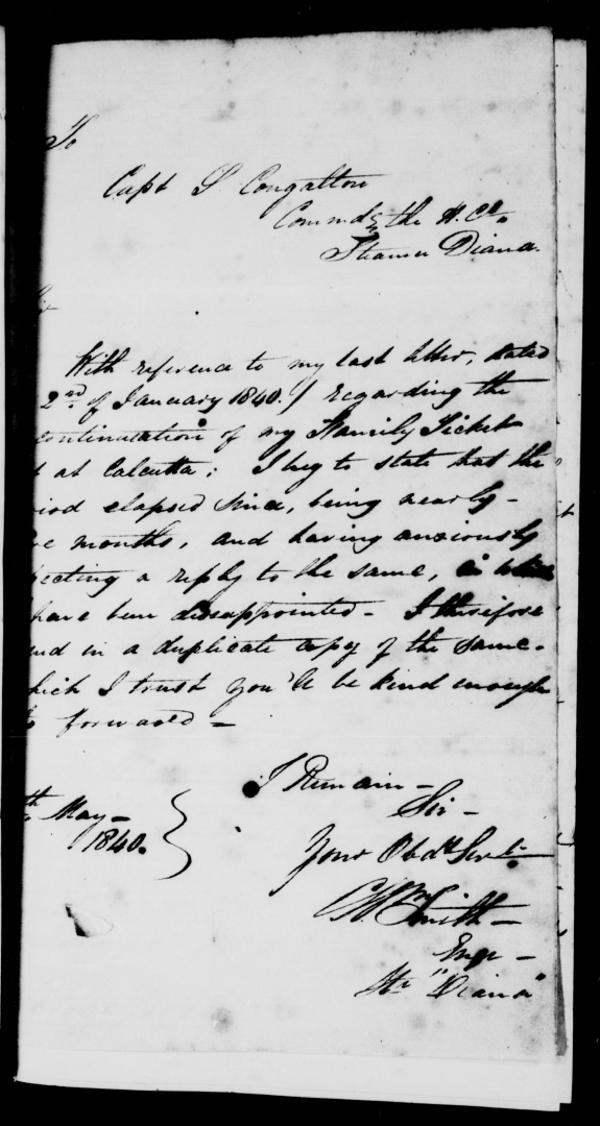 To
Capt S Congalton
Commdg the H. Cos
Steamer Diana.
With reference to my last letter, dated
2nd of January 1840. / regarding the
continuation of my Family Ticket
at Calcutta; I beg to state that the
riod elapsed since, being nearly -
ve months, and having anxiously
pecting a reply to the same, in which
have been dissappointed - I therefore
nd in a duplicate copy of the same -
hich I trust you'll be kind enough
to forward -
I Remain -
Sir -
th May -
1840.
Your Obdt Servt
Wm Smith -
Engr -
Str "Diana"